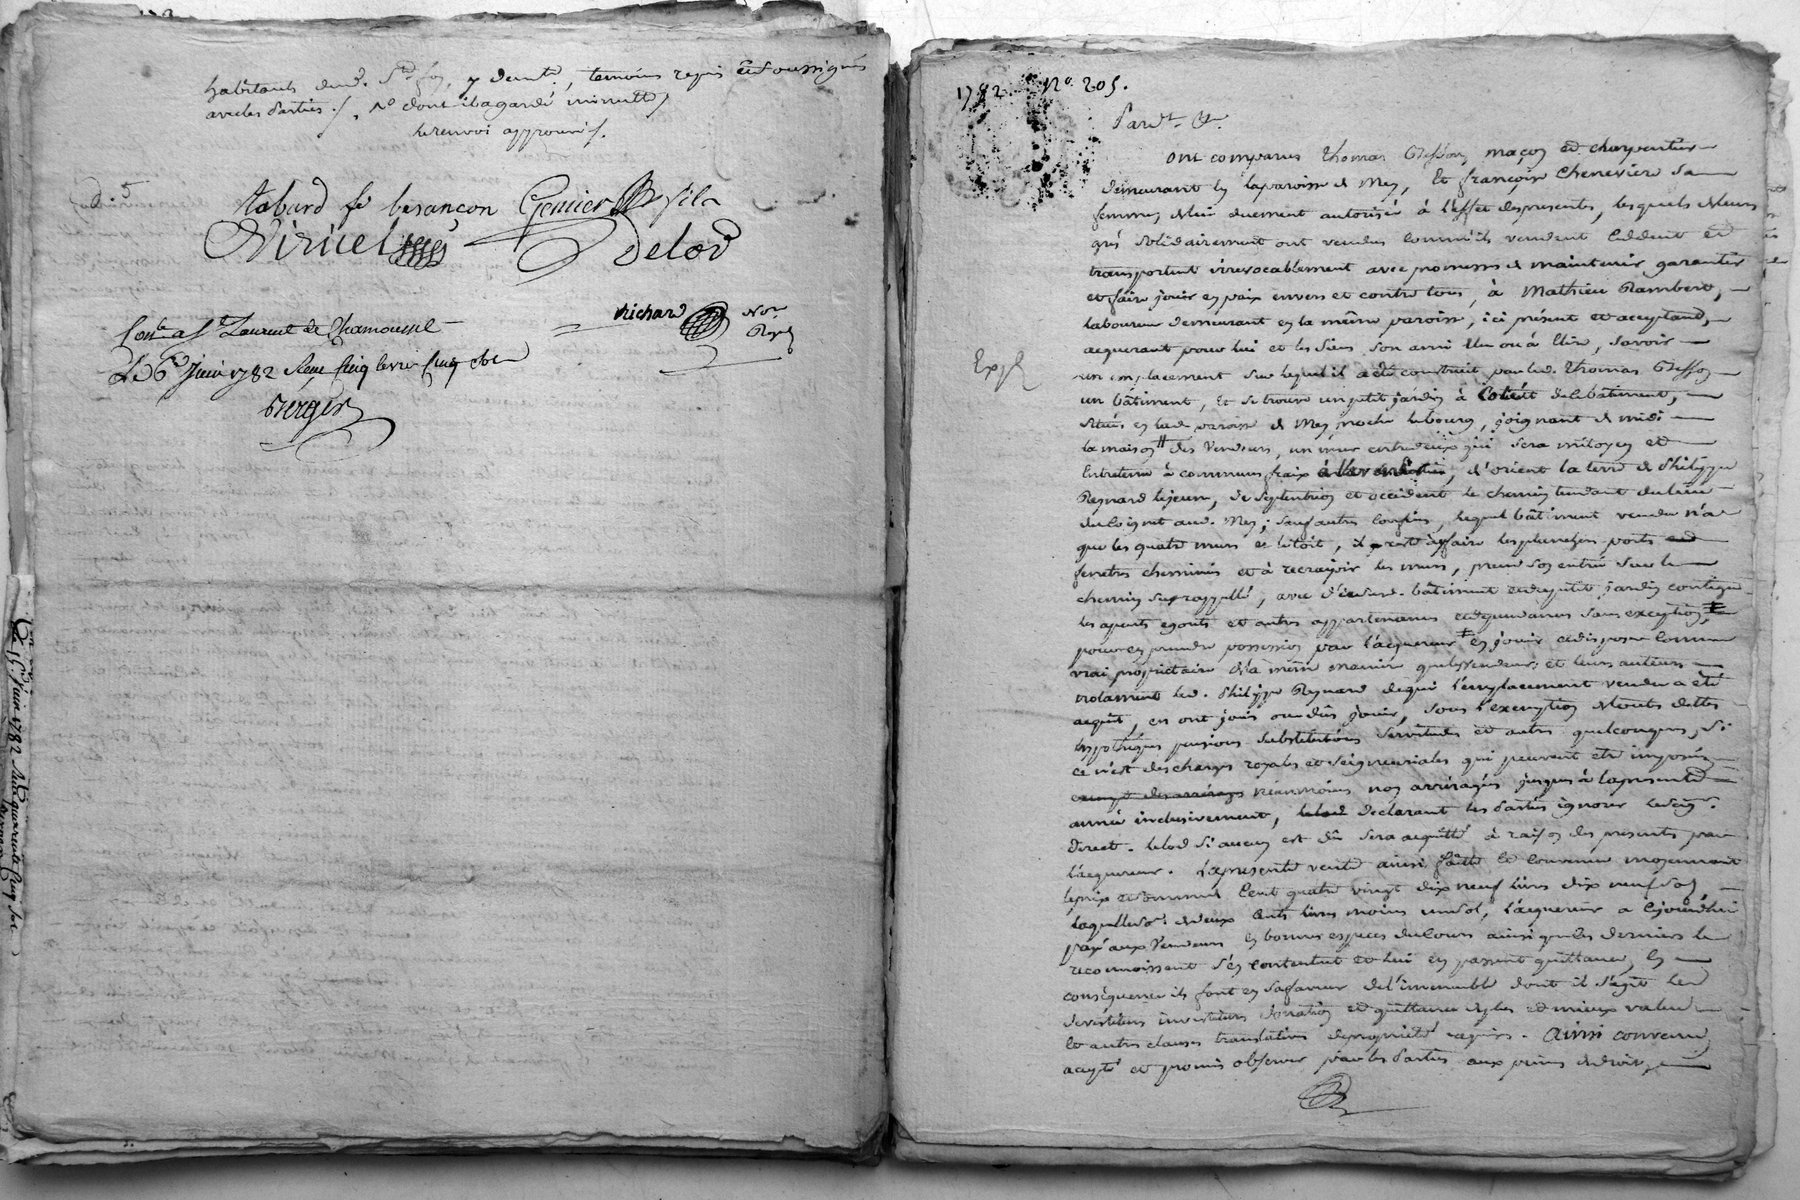 habitants dud. St foy, y demt, temoins requis et soussignés
avec les Parties ./. dont il a gardé minutte
le renvoi approuvé ./.
d. 5
tabard fe besancon Grenier fils
Viricel Delord
richard Nore
Royl
Conlé a St Laurent de Chamousset
Le 6e juin 1782 Reçu cinq livres cinq sols
Berger
Le 15e juin 1782 quarente cinq sols
Berger
1782. No. 205.
Pardt. &.
Ont comparus Thomas maçon et charpentier
demeurant en la paroisse de Meys, Et françoise Chenevier sa
femme, de lui duement autorisée à l'effet des présentes, lesquels de leurs
grés solidairement ont vendus comm'ils vendent Cèddent et
transportent irrevocablement avec promesse de maintenir garantir
et faire jouir en paix envers et contre tous, à Mathieu Rambert,
laboureur demeurant en la même paroisse, ici présent et acceptant,
acquerant pour lui et les siens son ami Elu ou à Elire, savoir
Expé
un emplacement sur lequel il a été construit par led. Thomas
un bâtiment, Et se trouve un petit jardin à Côté de le bâtiment,
situés en lad. paroisse de Meys proche le bourg, joignant de midi
la maison des Vendeurs, un mur entredeux qui sera mitoyen et
Entretenu à communs fraix à l'avenir, d'orient la terre de Philippe
Reynard le jeune, de septentrion et occident le chemin tendant du lieu
du Coignet aud. Meys; sauf autres confins, lequel bâtiment vendu n'a
que les quatre murs et le toit, il reste à faire les planchers portes et
fenetres cheminées et à recrepir les murs, prend son entrée sur le
chemin susrappellé, avec d'icelui. bâtiment et du petit jardin contigu
les aparts egouts et autres appartenances et dépendances sans exception,
pour en prendre possession par l'acquereur en jouir et disposer comme
vrai propriétaire de la même manière que les vendeurs et leurs auteurs
notamment led. Philippe Reynard de qui l'emplacement vendu a été
acquit, en ont jouis ou dûs jouir, sous l'exemption de toutes dettes
hypothéques pensions substitutions servitudes et autres quelconques, si
ce n'est des charges royales et seigneuriales qui peuvent etre imposées
néanmoins nos arrérages jusques à la présente
année inclusivement, declarant les Parties ignorer le seigr.
direct. le lod si aucun est dû sera acquitté à raison des présentes par
l'acquereur. La présente vente ainsi faitte et convenue moyennant
le prix et somme Cent quatre vingt dix neuf livres dix neuf sols,
laquelle de deux Cents livres moins un sol, l'acquereur a cejourd'hui
payé aux Vendeurs en bonnes especes du Cours ainsi que ces derniers le
reconnoissent s'en contentent et lui en passent quittance, En
conséquence ils font en sa faveur de l'immeuble dont il s'agit les
devestitures investitures donation et quittance de plus et mieux value
Et autres clauses translatives de propriété requises. Ainsi convenu
accepté et promis observer par les Parties aux peines de droit,